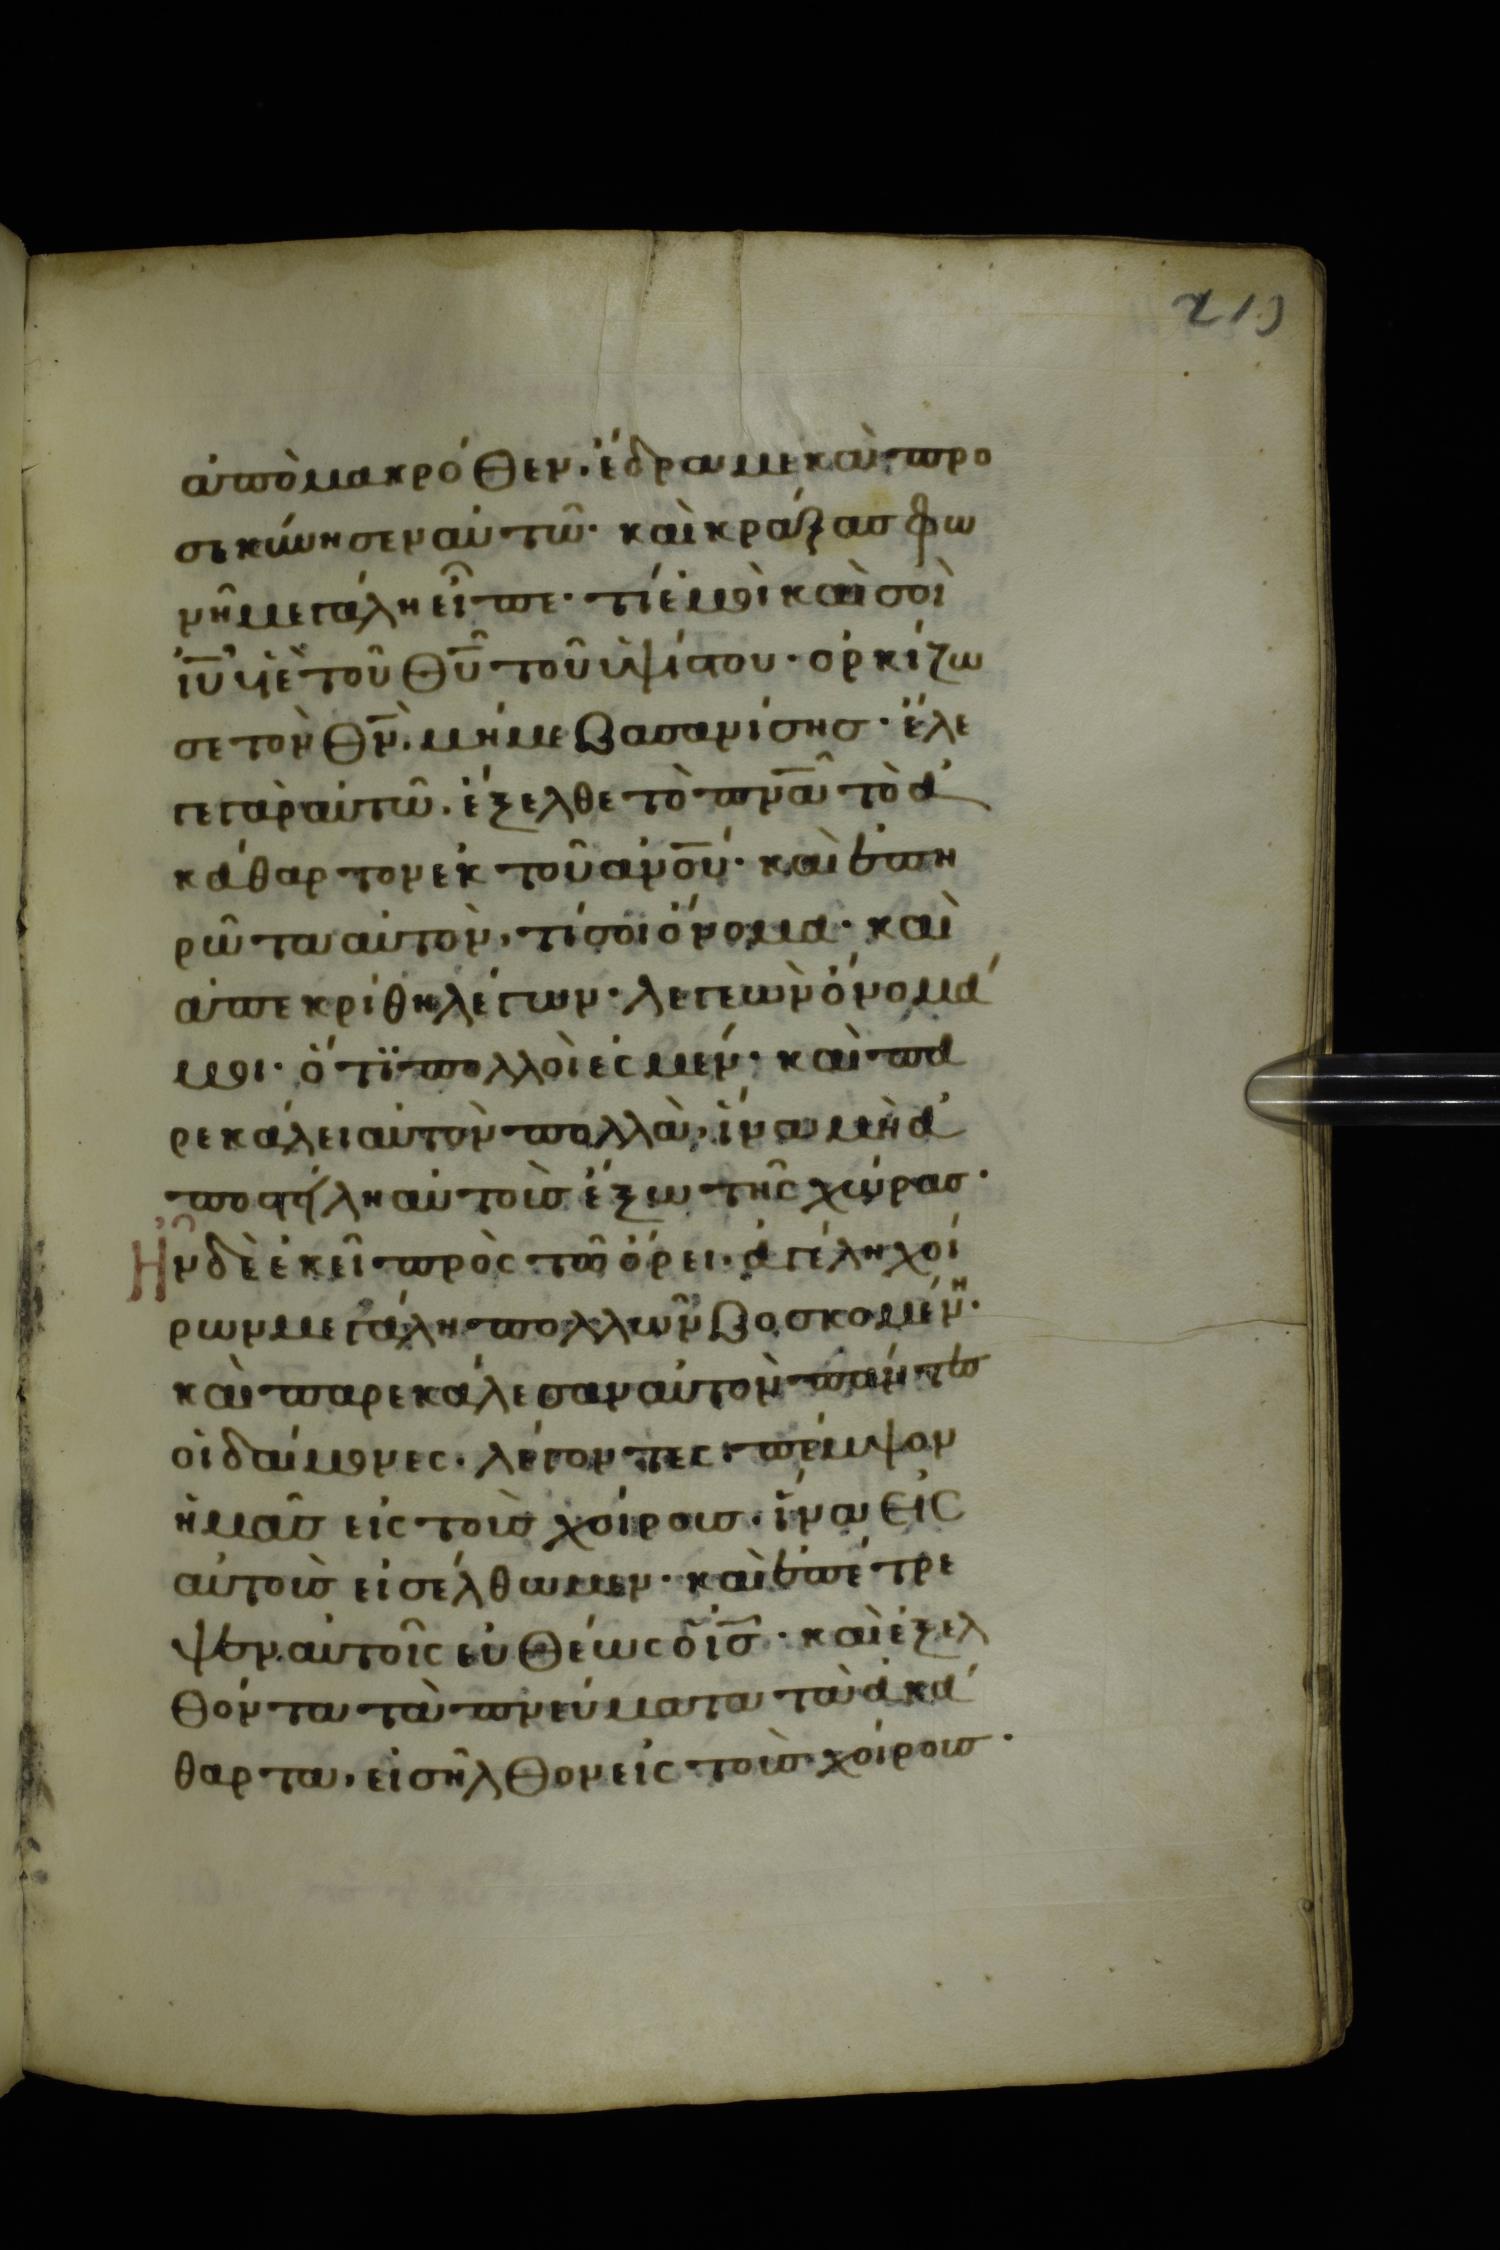 219
ἀπὸ μακρόθεν. ἔδραμε καὶ προ
σεκύνησεν αὐτῶ· καὶ κράξας φω
νῆ μεγάλη εἶπε· τί ἐμοὶ καὶ σοὶ
ἰῦ υἱὲ τοῦ θῦ τοῦ ὑψίστου· ὁρκίζω
σε τὸν θν̄. μή με βασανίσης· ἔλε
γε γὰρ αὐτῶ. ἔξελθε τὸ πνᾶ τὸ ἀ
κάθαρτον ἐκ τοῦ ἀνου̅· καὶ ἐπη
ρῶτα αὐτὸν, τί σοι ὄνομα· καὶ
ἀπεκρίθη λέγων· λεγεὼν ὄνομά
μοι· ὅτι πολλοὶ ἐσμέν· καὶ πα
ρεκάλει αὐτὸν πολλὰ, ἵνα μὴ ἀ
ποστείλη αὐτοὺς ἔξω τῆς χώρας·
Ἦν δὲ ἐκεῖ πρὸς τῶ ὄρει. ἀγέλη χοί
ρων μεγάλη πολλῶν βοσκομένη·
καὶ παρεκάλεσαν αὐτὸν πάντες
οἱ δαίμονες. λέγοντες· πέμψον
ἡμᾶς εἰς τοὺς χοίρους. ἵνα εἰς
αὐτοὺς εἰσέλθωμεν· καὶ ἐπέτρε
ψεν αὐτοῖς εὐθέως ὁ ἰς̅· καὶ ἐξελ
θόντα τὰ πνεύματα τὰ ἀκά
θαρτα, εἰσῆλθον εἰς τοὺς χοίρους·